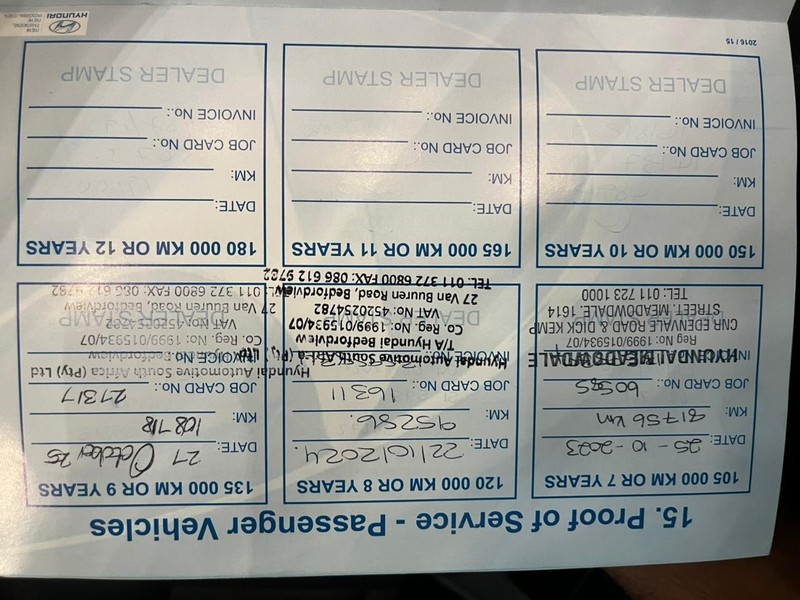 15. Proof of Service - Passenger Vehicles
105 000 KM OR 7 YEARS
DATE: 25 - 10 - 2023
KM: 81756 km
JOB CARD No.:
INVOICE No.:
HYUNDAI MEADOWDALE
Reg No: 1999/015934/07
CNR EDENVALE ROAD & DICK KEMP
STREET, MEADOWDALE, 1614
TEL: 011 723 1000
120 000 KM OR 8 YEARS
DATE: 22/10/2024
KM: 95286
JOB CARD No.: 16311
INVOICE No.:
Hyundai Automotive South Africa (Pty) Ltd
T/A Hyundai Bedfordview
Co. Reg. No: 1999/015934/07
VAT No: 4520254782
27 Van Buuren Road, Bedfordview
TEL: 011 372 6800 FAX: 086 612 9782
135 000 KM OR 9 YEARS
DATE: 27 October 25
KM: 108718
JOB CARD No.: 27317
INVOICE No.:
Hyundai Automotive South Africa (Pty) Ltd
T/A Hyundai Bedfordview
Co. Reg. No: 1999/015934/07
VAT No: 4520254782
27 Van Buuren Road, Bedfordview
TEL: 011 372 6800 FAX: 086 612 9782
DEALER STAMP
150 000 KM OR 10 YEARS
DATE:
KM:
JOB CARD No.:
INVOICE No.:
DEALER STAMP
165 000 KM OR 11 YEARS
DATE:
KM:
JOB CARD No.:
INVOICE No.:
DEALER STAMP
180 000 KM OR 12 YEARS
DATE:
KM:
JOB CARD No.:
INVOICE No.:
DEALER STAMP
2016 / 15
HYUNDAI
NEW THINKING.
NEW POSSIBILITIES.